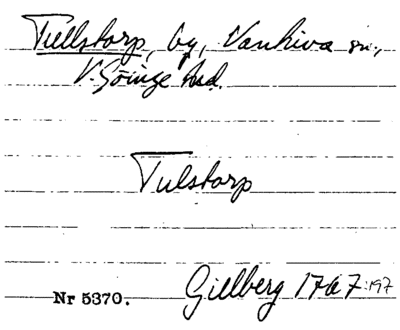 Tullstorp, by, Vankiva sn.,
V. Göinge hd.
Tulstorp
Gillberg 1767:197
Nr 5370.